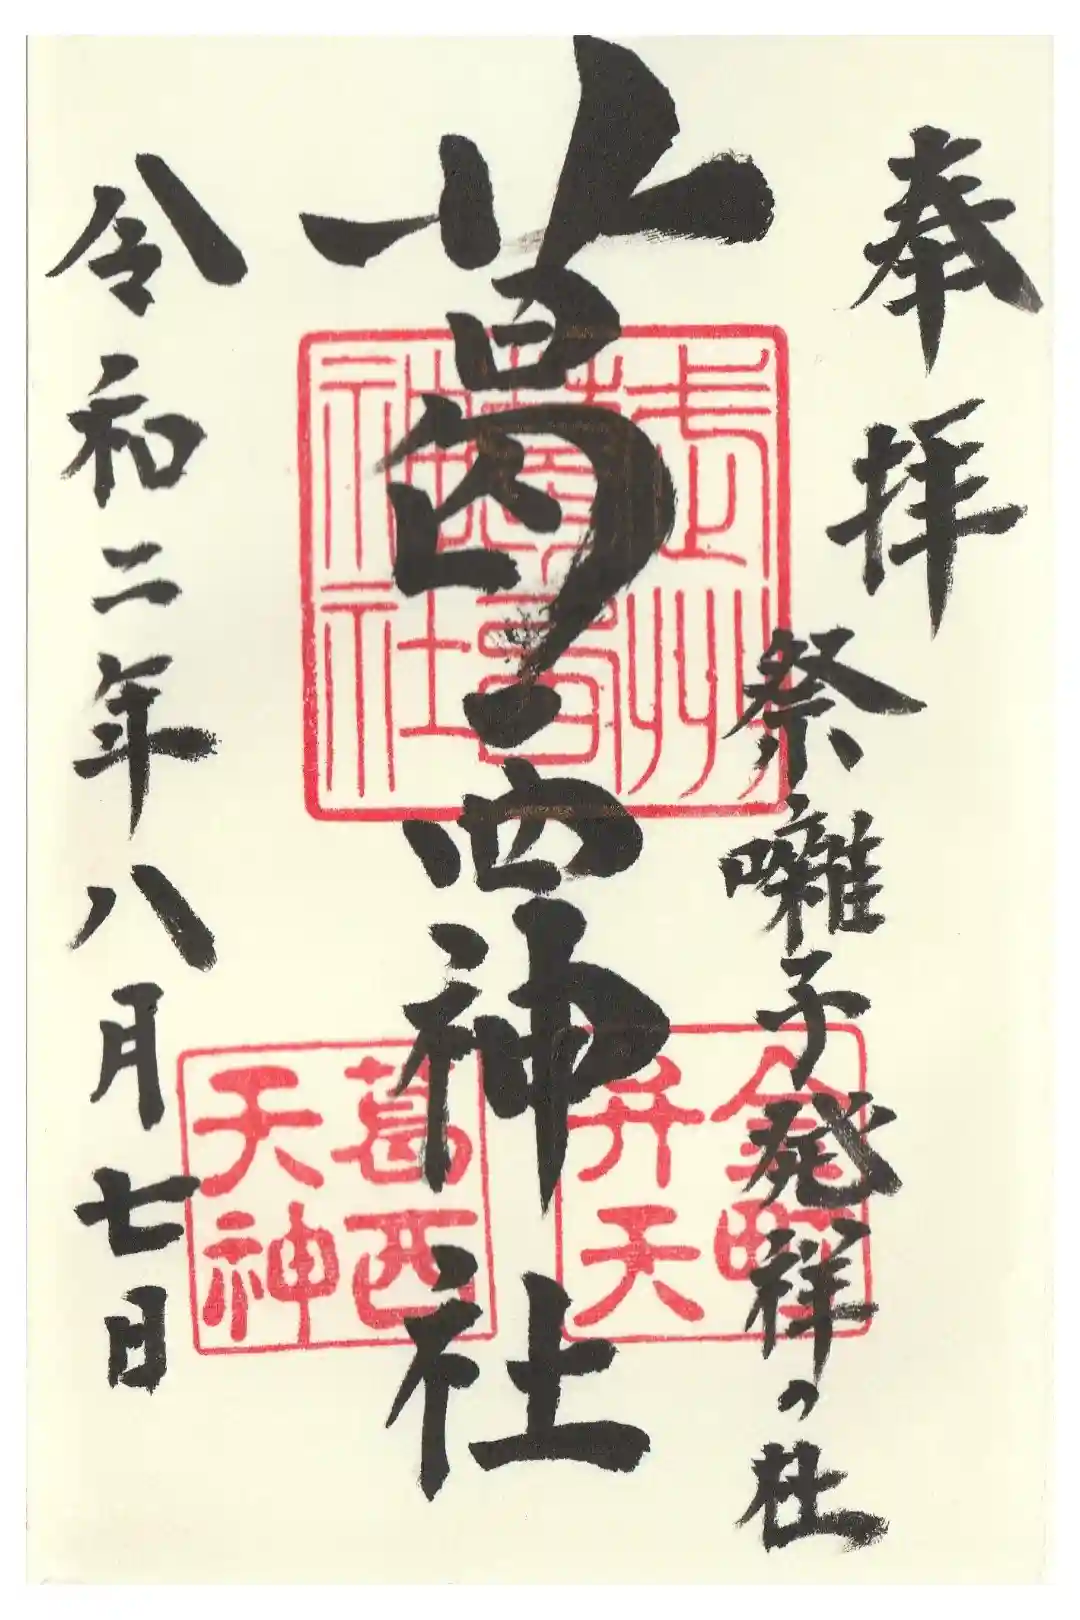 奉拝
祭囃子発祥の社
葛西神社
令和二年八月七日
武州
葛西
神社
金町
弁天
葛西
天神